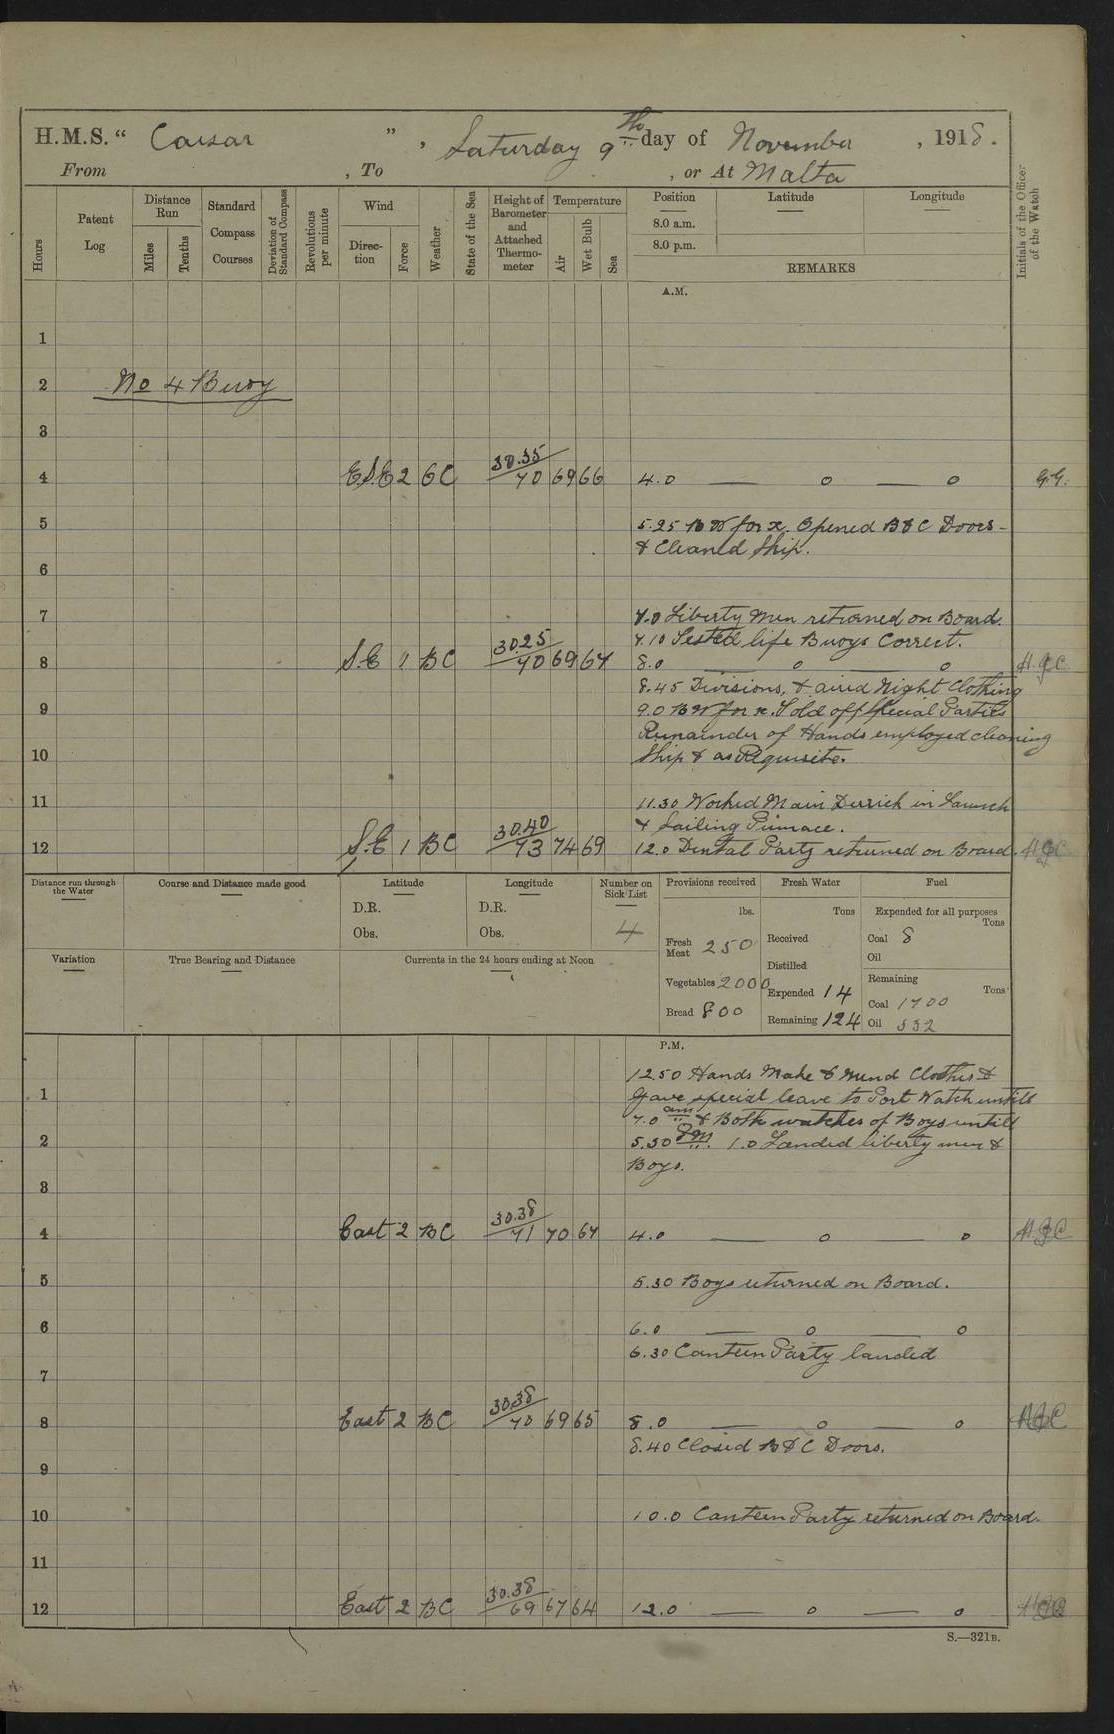 H.M.S. “ Caesar ” , Saturday 9th day of November , 1918.
From , To , or At Malta
Hours
Patent Log
Distance Run
Miles
Tenths
Standard Compass Courses
Deviation of Standard Compass
Revolutions per minute
Wind
Direction
Force
Weather
State of the Sea
Height of Barometer and Attached Thermometer
Temperature
Air
Wet Bulb
Sea
Position
Latitude
Longitude
8.0 a.m.
8.0 p.m.
REMARKS
Initials of the Officer of the Watch
A.M.
1
2 No 4 Buoy
3
4 ESE 2 BC 30.35 70 69 66 4.0 — o — o G.G.
5 5.25 B W for x. Opened B & C Doors
& Cleaned Ship.
6
7 7.0 Liberty Men returned on Board.
7.10 Tested life Buoys Correct.
8 S.E 1 BC 30.25 70 69 67 8.0 — o o H.J.C
8.45 Divisions, & aired Night Clothing
9 9.0 B W for x. Told off Special Parties
Remainder of Hands employed cleaning
10 Ship & as Requisite.
11 11.30 Worked Main Derrick in Launch
& Sailing Pinnace.
12 S.E 1 BC 30.40 73 74 69 12.0 Dental Party returned on Board. H.J.C
Distance run through the Water
Course and Distance made good
Latitude
D.R.
Obs.
Longitude
D.R.
Obs.
Number on Sick List
4
Provisions received
lbs.
Fresh Meat 250
Vegetables 2000
Bread 800
Fresh Water
Tons
Received
Distilled
Expended 14
Remaining 124
Fuel
Expended for all purposes
Tons
Coal 8
Oil
Remaining
Tons
Coal 1700
Oil 532
Variation
True Bearing and Distance
Currents in the 24 hours ending at Noon
P.M.
12.50 Hands Make & Mend Clothes &
1 Gave special leave to Port Watch untill
7.0 am & Both watches of Boys untill
2 5.30 Pm. 1.0 Landed liberty men &
Boys.
3
4 East 2 BC 30.38 71 70 67 4.0 — o — o H.J.C
5 5.30 Boys returned on Board.
6 6.0 — o — o
6.30 Canteen Party landed
7
8 East 2 BC 30.38 70 69 65 8.0 — o — o H.J.C
8.40 Closed B & C Doors.
9
10 10.0 Canteen Party returned on Board.
11
12 East 2 BC 30.38 69 67 64 12.0 — o — o
S.—321B.